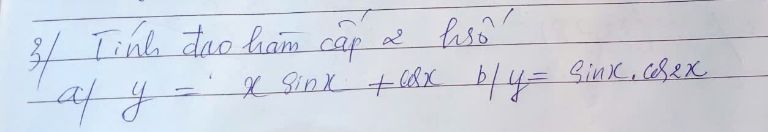 3/ Tính đạo hàm cấp 2 hsố
a/ y = x sinx + cosx b/ y = sinx.cos2x